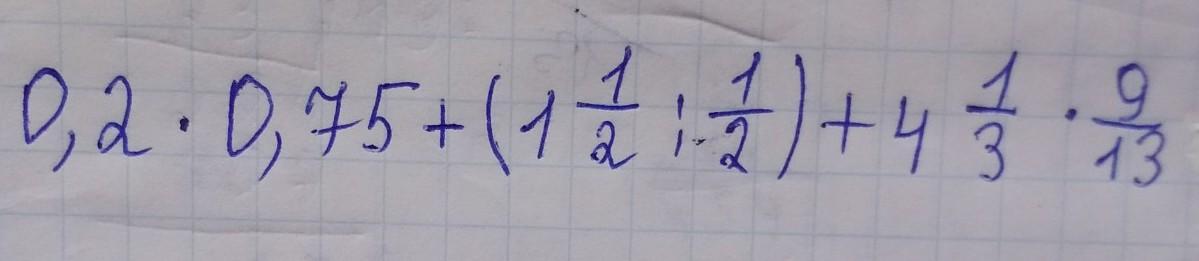 0,2 · 0,75 + (1 1/2 : 1/2) + 4 1/3 · 9/13